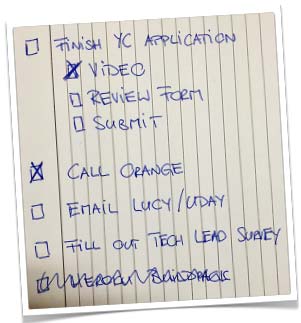 FINISH YC APPLICATION
VIDEO
REVIEW FORM
SUBMIT
CALL ORANGE
EMAIL LUCY/UDAY
FILL OUT TECH LEAD SURVEY